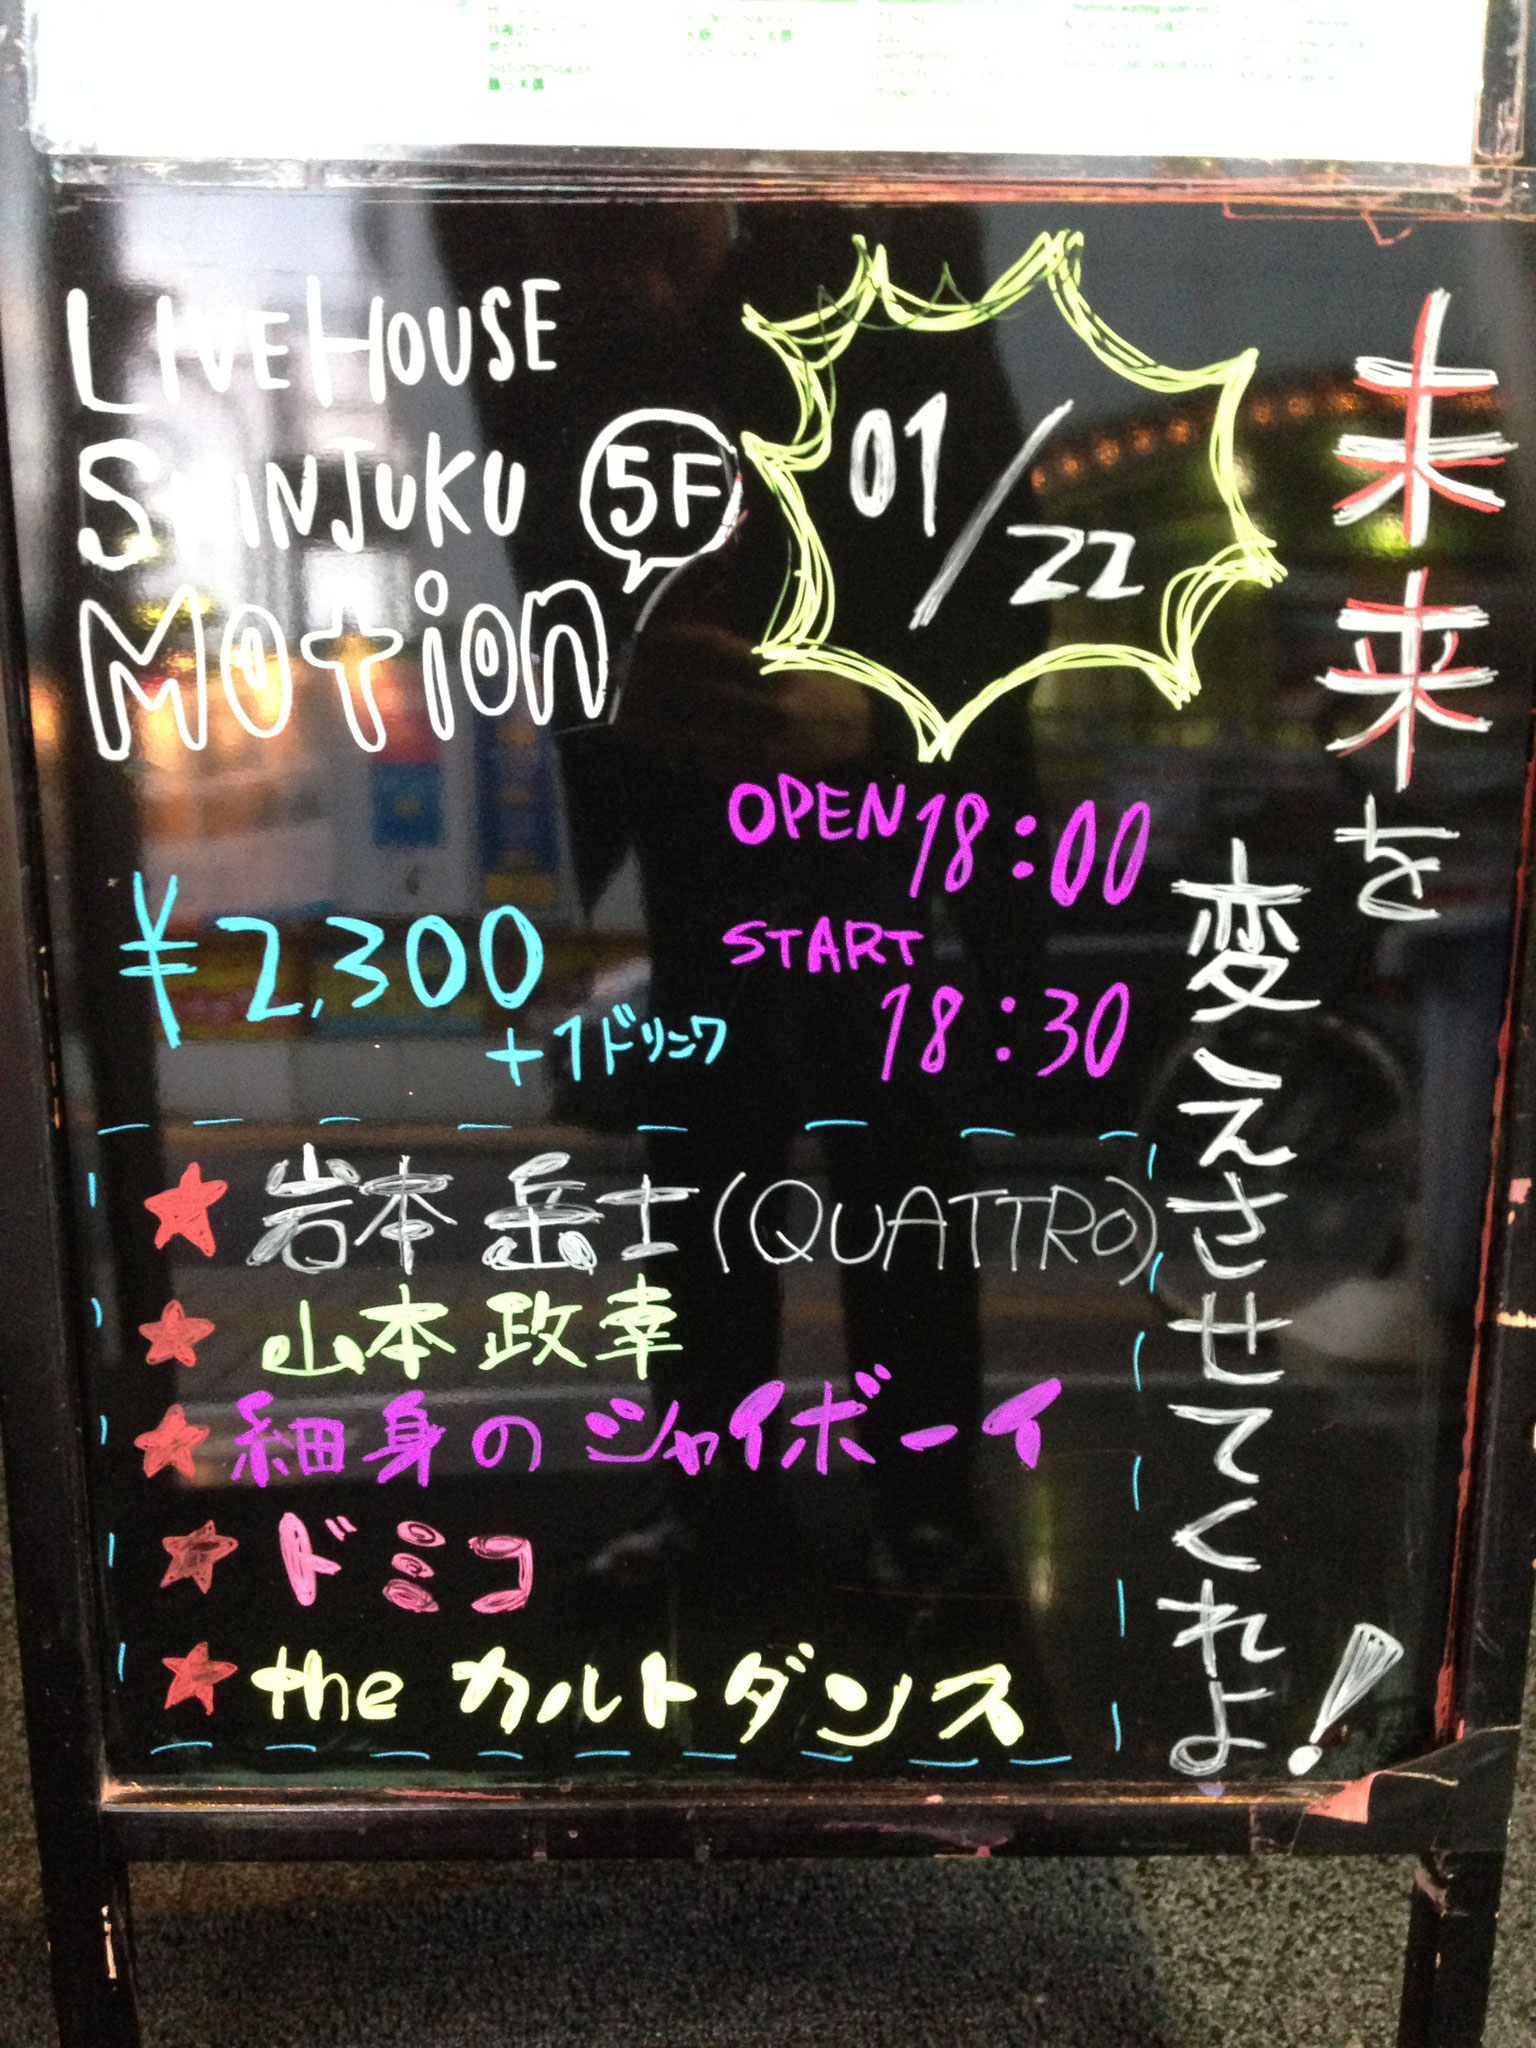 LIVE HOUSE
SHINJUKU
5F
MOTION
01/22
未来を
変えさせてくれよ!
OPEN 18:00
START
18:30
¥2,300
+1ドリンク
★岩本岳士(QUATTRO)
★山本政幸
★細身のシャイボーイ
★ドミコ
★theカルトダンス